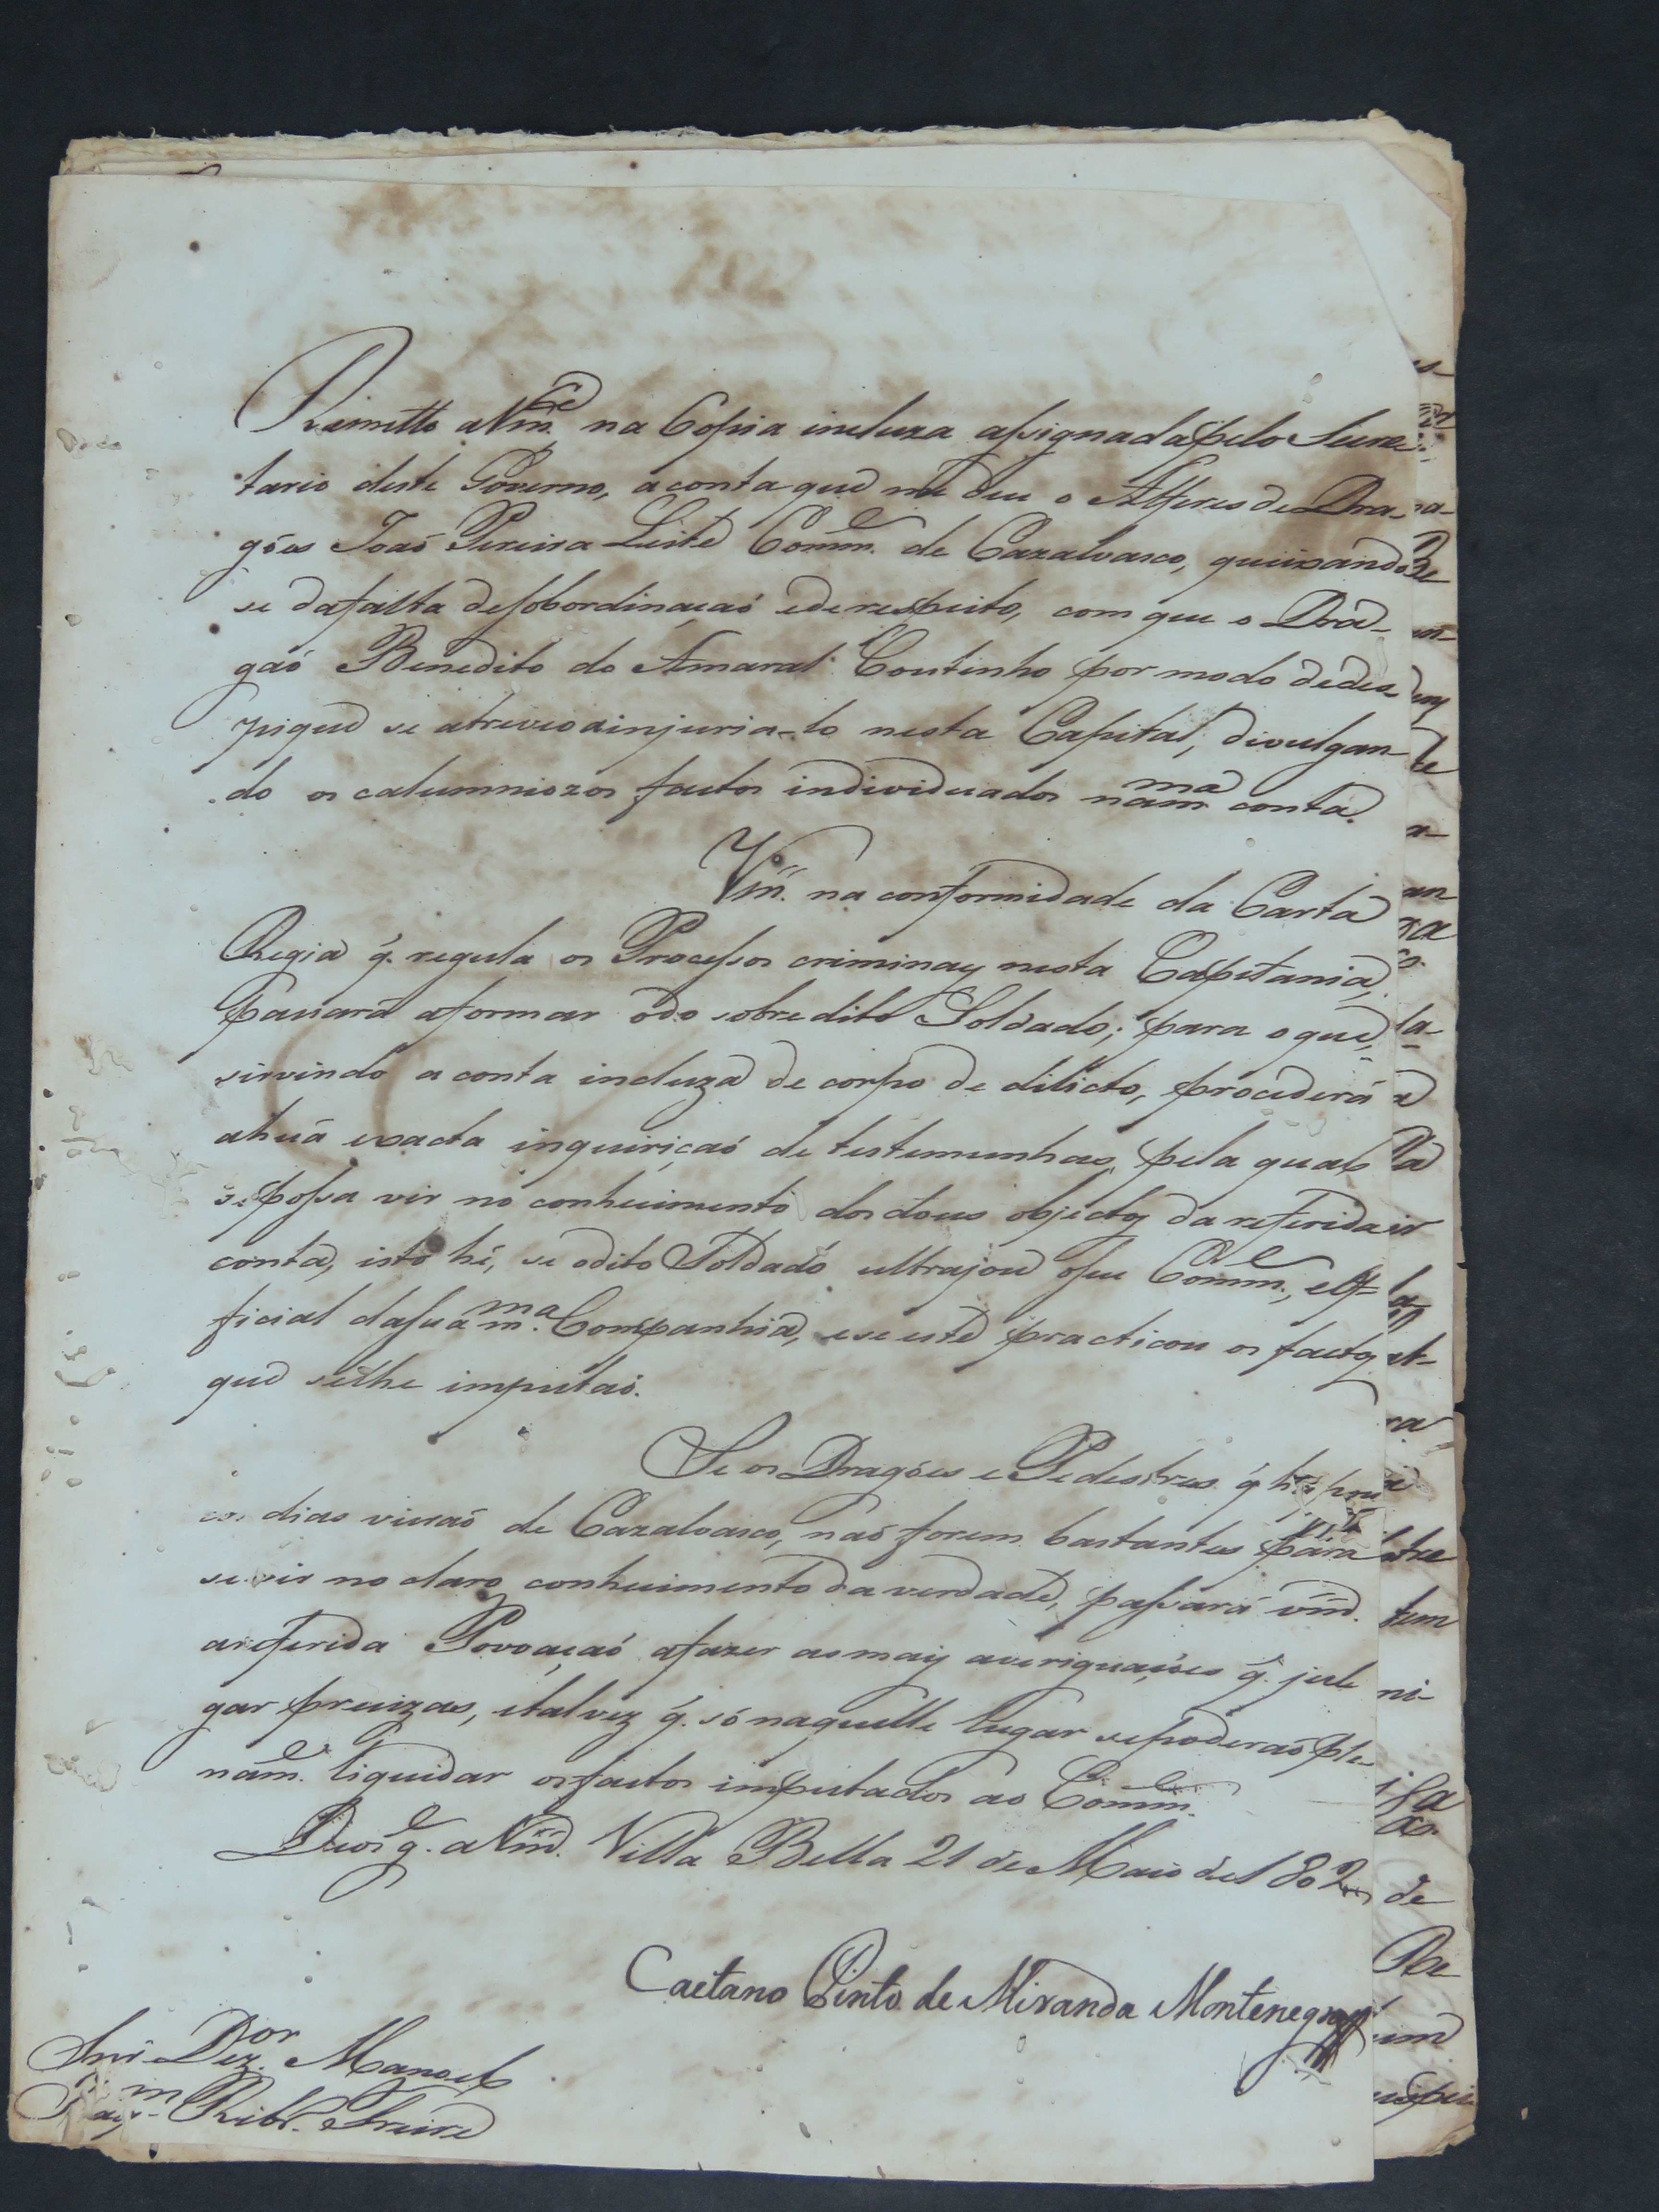 Remetto a Vm.ce na Copia incluza assignada pelo Secre-
tario deste Governo, a conta que me deu o Alferes de Dra-
gões João Pereira Leite Comm.e de Cazalvasco, queixando
se da falta de sobordinação e de respeito, com que o Dra-
gaõ Benedito do Amaral Coutinho por modo de des-
pique se atreveo a injuria-lo nesta Capital, divulgan-
do os calumniozos factos individuados na m.ma conta.
Vm. na conformidade da Carta
Regia q̃. regula os Processos criminaes nesta Capitania,
passará a formar o do sobredito Soldado; para o que,
servindo a conta incluza de corpo de delicto, procederá
a huã exacta inquiriçaõ de testemunhas, pela qual
se possa vir no conhecimento dos dous objectos da referida
conta, isto hé, se o dito Soldado ultrajou o seu Comm.e, e Of-
ficial da sua m.ma Companhia, e se este practicou os factos
que se lhe imputaõ.
Se os Dragões e Pedestres q̃
dias vieraõ de Cazalvasco, naõ forem bastantes para
se vir no claro conhecimento da verdade, passará Vm.
a referida Povoaçaõ a fazer as mais averiguações q̃. jul
gar precizas, e talvez q̃. só naquelle lugar se poderaõ ple-
nam.e liquidar os factos imputados ao Comm.e
Deos g.e a Vm. Villa Bella 21 de Maio de 1802
Caetano Pinto de Miranda Montenegro
Snr. Dez.or Manoel
Ribr. Freire